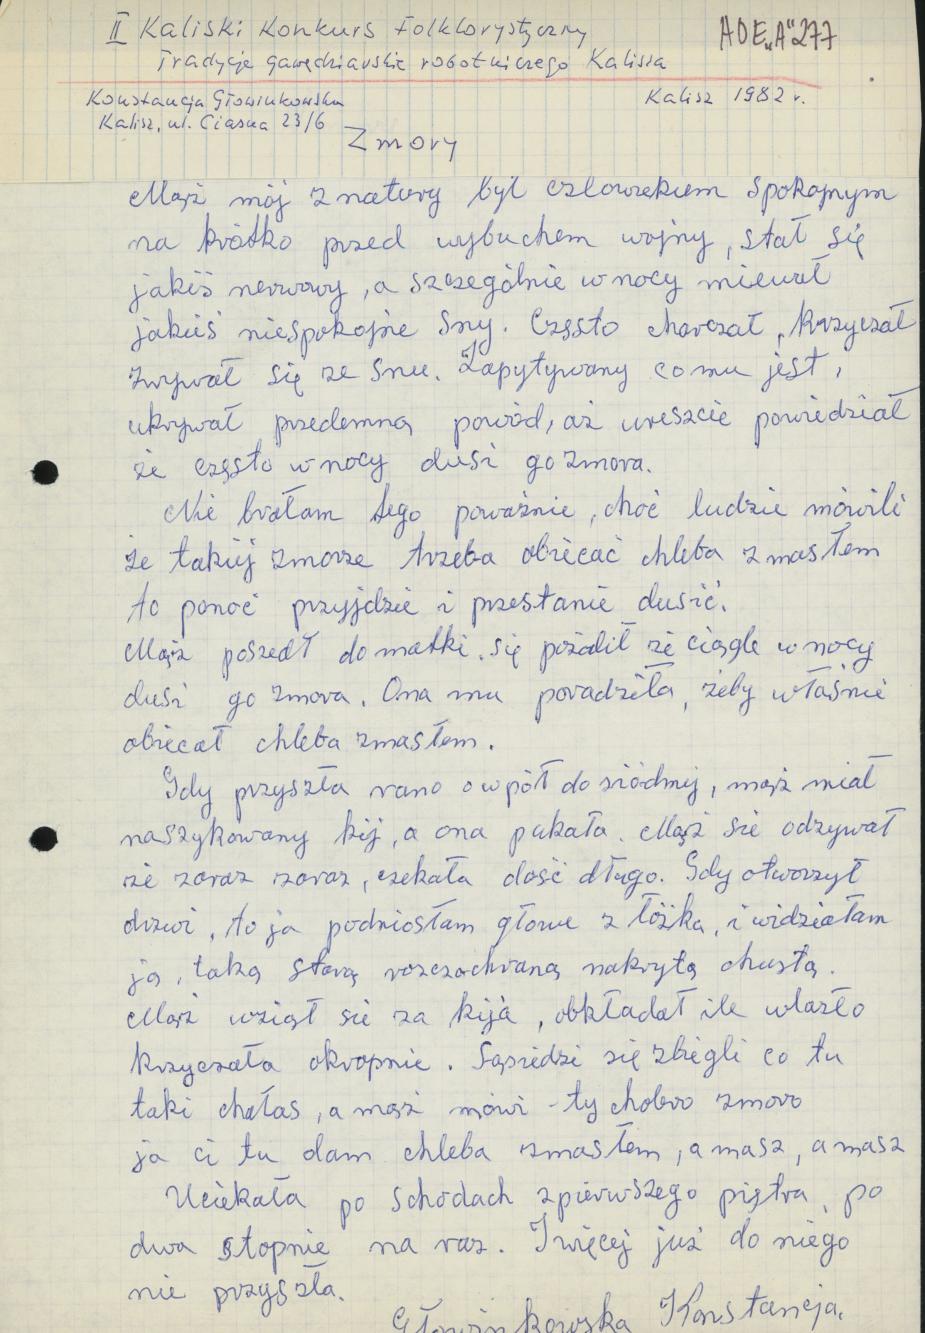 II Kaliski Konkurs Folklorystyczny
ADE „A" 277
Tradycje gawędziarskie robotniczego Kalisza
Konstancja Głowinkowska
Kalisz 1982 r.
Kalisz, ul. Ciasna 23/6
Zmory
Mąż mój z natury był człowiekiem spokojnym
na krótko przed wybuchem wojny, stał się
jakiś nerwowy, a szczególnie w nocy miewał
jakieś niespokojne sny. Często charczał, krzyczał
zrywał się ze snu. Zapytywany co mu jest,
ukrywał przedemną powód, aż wreszcie powiedział
że często w nocy dusi go zmora.
Nie brałam tego poważnie, choć ludzie mówili
że takiej zmorze trzeba obiecać chleba z masłem
to ponoć przyjdzie i przestanie dusić.
Mąż poszedł do matki się poradił że ciągle w nocy
dusi go zmora. Ona mu poradziła, żeby właśnie
obiecał chleba z masłem.
Gdy przyszła rano o wpół do siódmej, mąż miał
naszykowany kij, a ona pukała. Mąż sie odzywał
że zaraz zaraz, czekała dość długo. Gdy otworzył
drzwi, to ja podniosłam głowe z łóżka, i widziałam
ją, taką starą rozczochraną nakrytą chustą.
Mąż wziął sie za kija, obkładał ile wlazło
krzyczała okropnie. Sąsiedzi się zbiegli co tu
taki chałas, a mąż mówi - ty cholero zmoro
ja ci tu dam chleba z masłem, a masz, a masz
Uciekała po schodach z pierwszego piętra, po
dwa stopnie na raz. I więcej już do niego
nie przyszła.
Głowinkowska Konstancja.